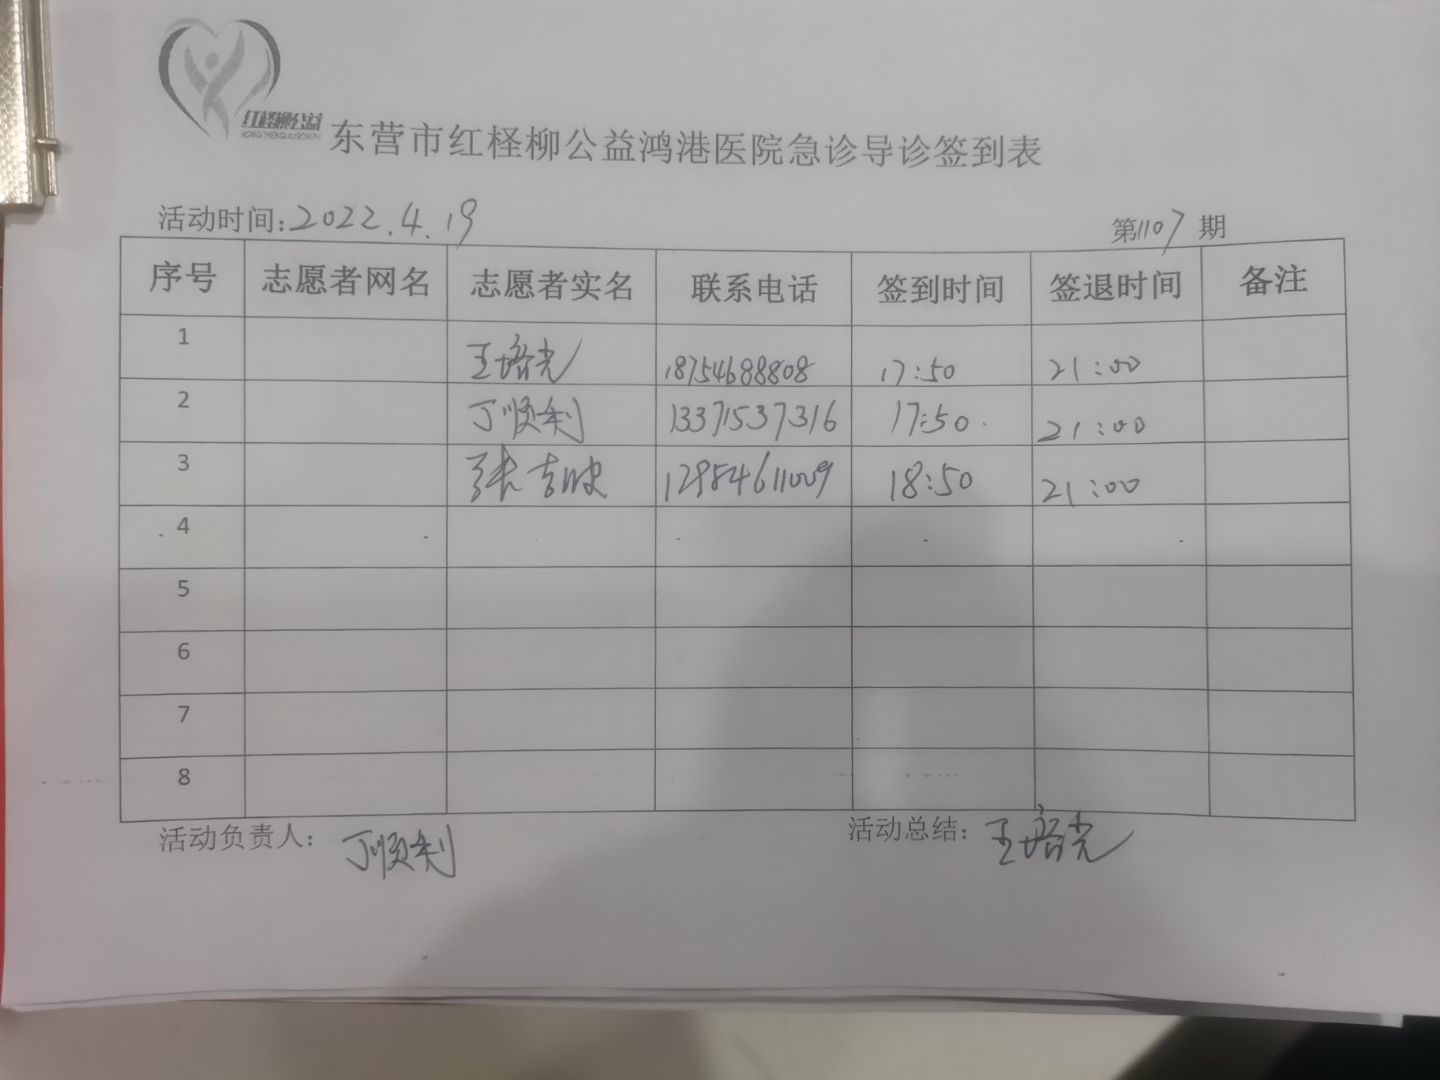 红柽柳公益
东营市红柽柳公益鸿港医院急诊导诊签到表
活动时间:2022.4.19 第1107期
序号 志愿者网名 志愿者实名 联系电话 签到时间 签退时间 备注
1 王培光 18754688808 17:50 21:00
2 丁顺利 13371537316 17:50. 21:00
3 张吉 18:50 21:00
4
5
6
7
8
活动负责人: 丁顺利 活动总结: 王培光